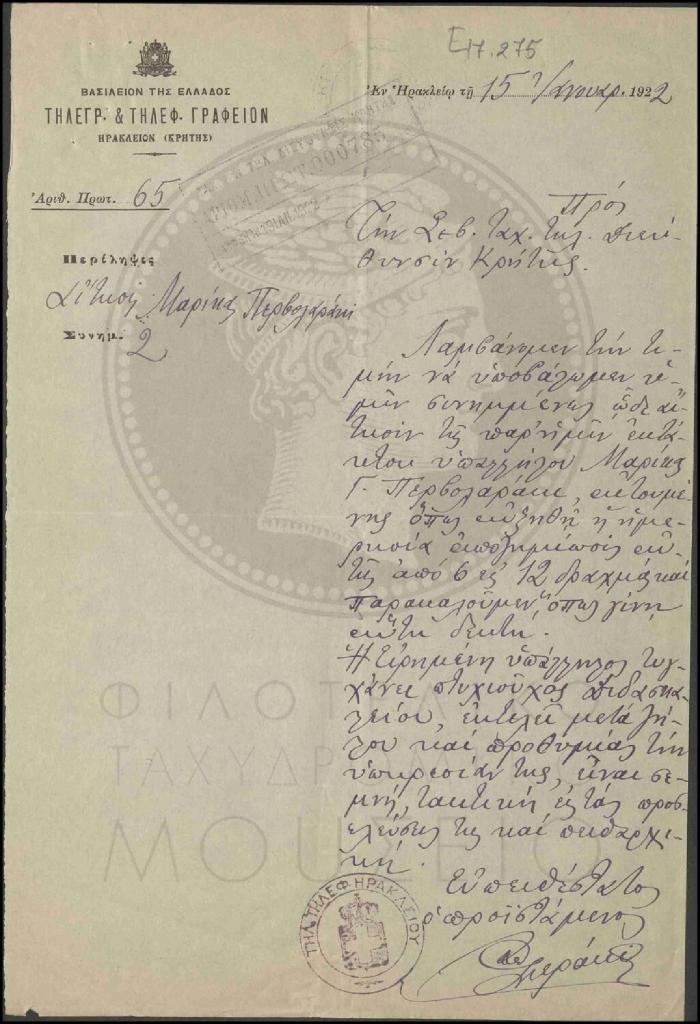 Ε17.275
ΒΑΣΙΛΕΙΟΝ ΤΗΣ ΕΛΛΑΔΟΣ
ΤΗΛΕΓΡ. & ΤΗΛΕΦ. ΓΡΑΦΕΙΟΝ
ΗΡΑΚΛΕΙΟΝ (ΚΡΗΤΗΣ)
Ἐν Ἡρακλείῳ τῇ 15 Ἰανουαρ. 1922
Ἀριθ. Πρωτ. 65
Πρός
Τὴν Σεβ. Ταχ. Τηλ. Διεύ-
θυνσιν Κρήτης.
Περίληψις
Αἴτησις Μαρίκας Περβολαράκι
Συνημ.
2
Λαμβάνομεν τὴν τι-
μὴν νὰ ὑποβάλωμεν ὑ-
μῖν συνημμένως ὧδε αἴ-
τησιν τῆς παρ' ἡμῖν ἐκτά-
κτου ὑπαλλήλου Μαρίκας
Γ. Περβολαράκι, αἰτουμέ-
νης ὅπως αὐξηθῇ ἡ ἡμε-
ρησία ἀποζημίωσις αὐ-
τῆς ἀπὸ 6 εἰς 12 δραχμὰς καὶ
παρακαλοῦμεν, ὅπως γίνῃ
αὕτη δεκτή.
Ἡ εἰρημένη ὑπάλληλος τυγ-
χάνει πτυχιοῦχος Διδασκα-
λείου, ἐκτελεῖ μετὰ ζή-
λου καὶ προθυμίας τὴν
ὑπηρεσίαν της, εἶναι σε-
μνή, τακτικὴ εἰς τὰς προσ-
ελεύσεις της καὶ πειθαρχι-
κή.
Εὐπειθέστατος
ὁ προϊστάμενος
ΤΗΛ. ΤΗΛΕΦ. ΗΡΑΚΛΕΙΟΥ
ΦΙΛΟΤΕΛΙΚΟ
ΤΑΧΥΔΡΟΜΙΚΟ
ΜΟΥΣΕΙΟ